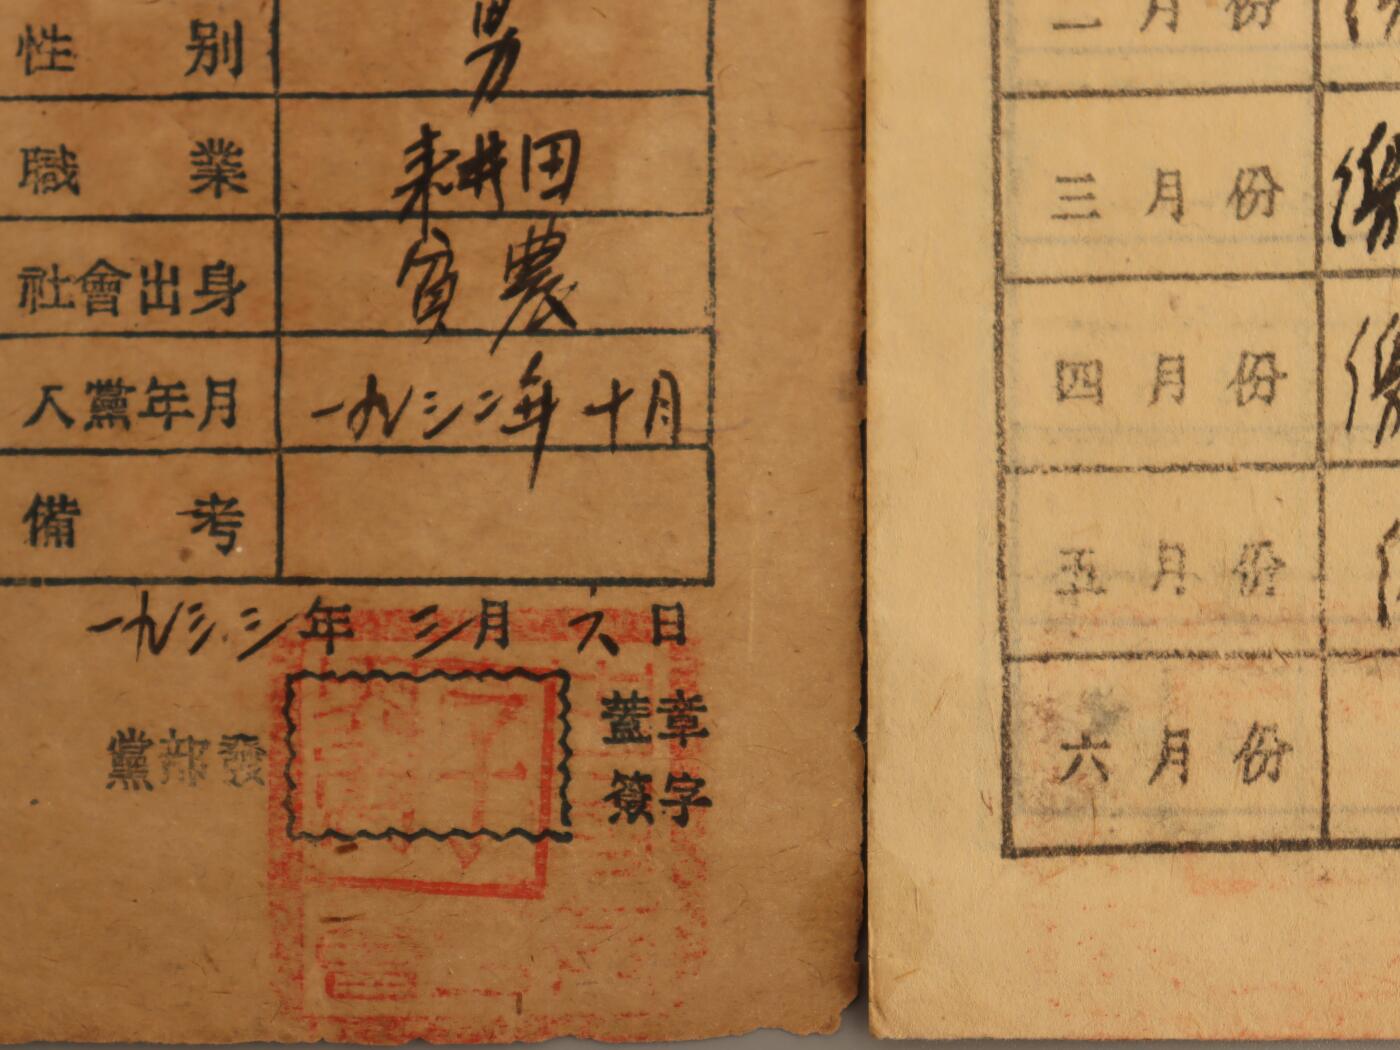 性別 男
職業 耕田
社會出身 貧農
入黨年月 一九三二年十月
備考
一九三三年三月六日
黨部發
蓋章
簽字
二月份
三月份
四月份
五月份
六月份